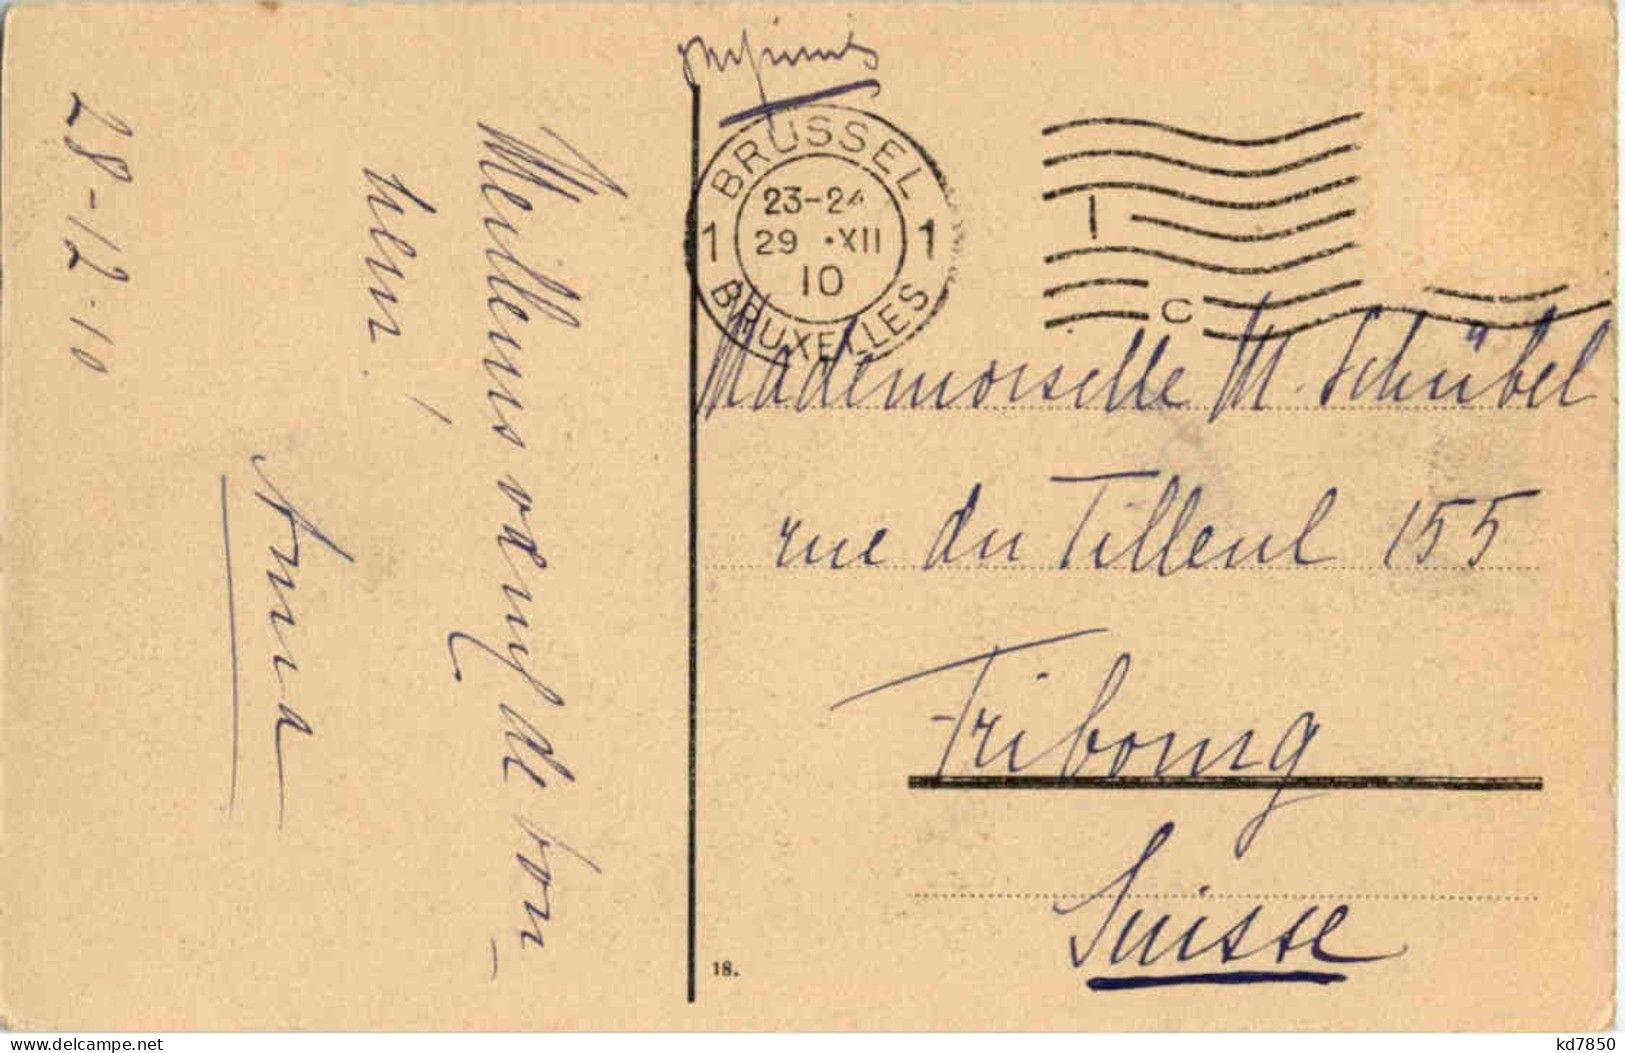 imprimés
BRUSSEL
1 23-24 1
29 ·XII
10
BRUXELLES
1
C
Mademoiselle M. Schübel
rue du Tilleul 155
Fribourg
Suisse
18.
28-12-10
Meilleurs vœux de bon-
heur!
Anna
kd7850